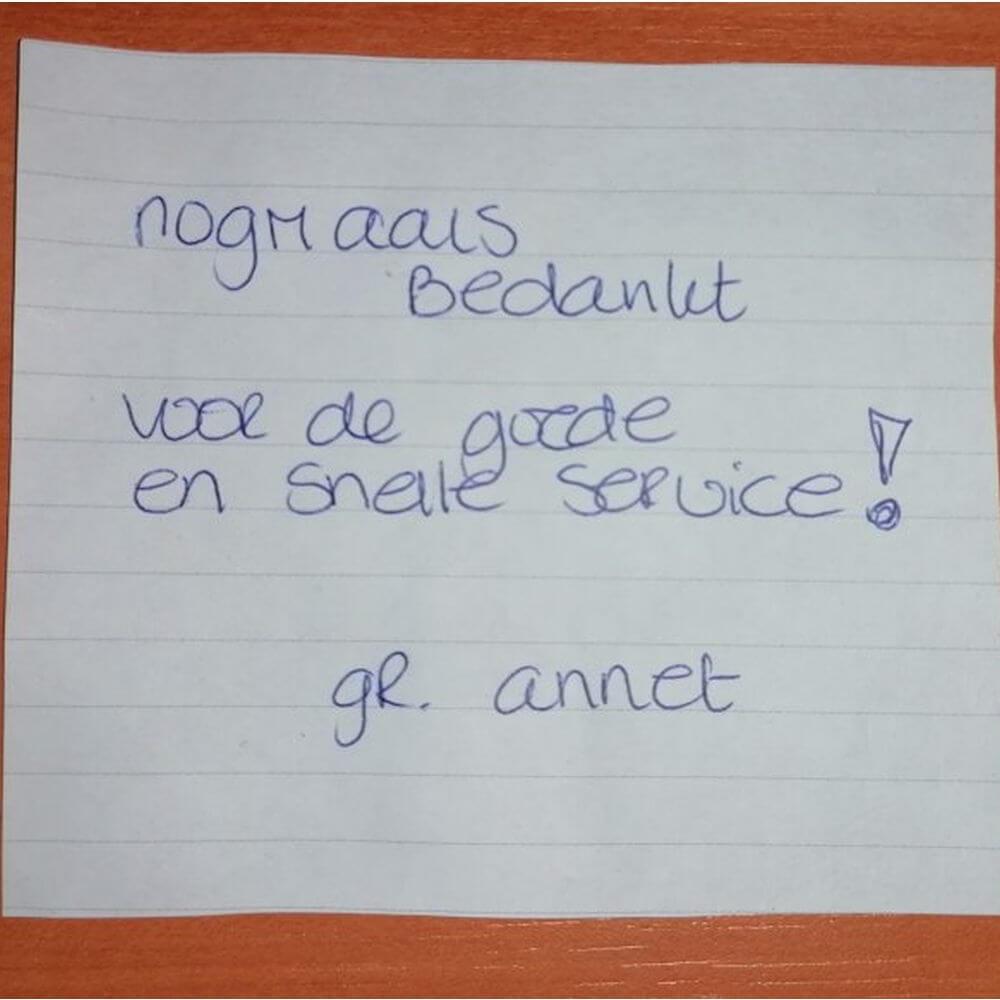 nogmaals
Bedankt
voor de goede
en snelle service!
gr. annet